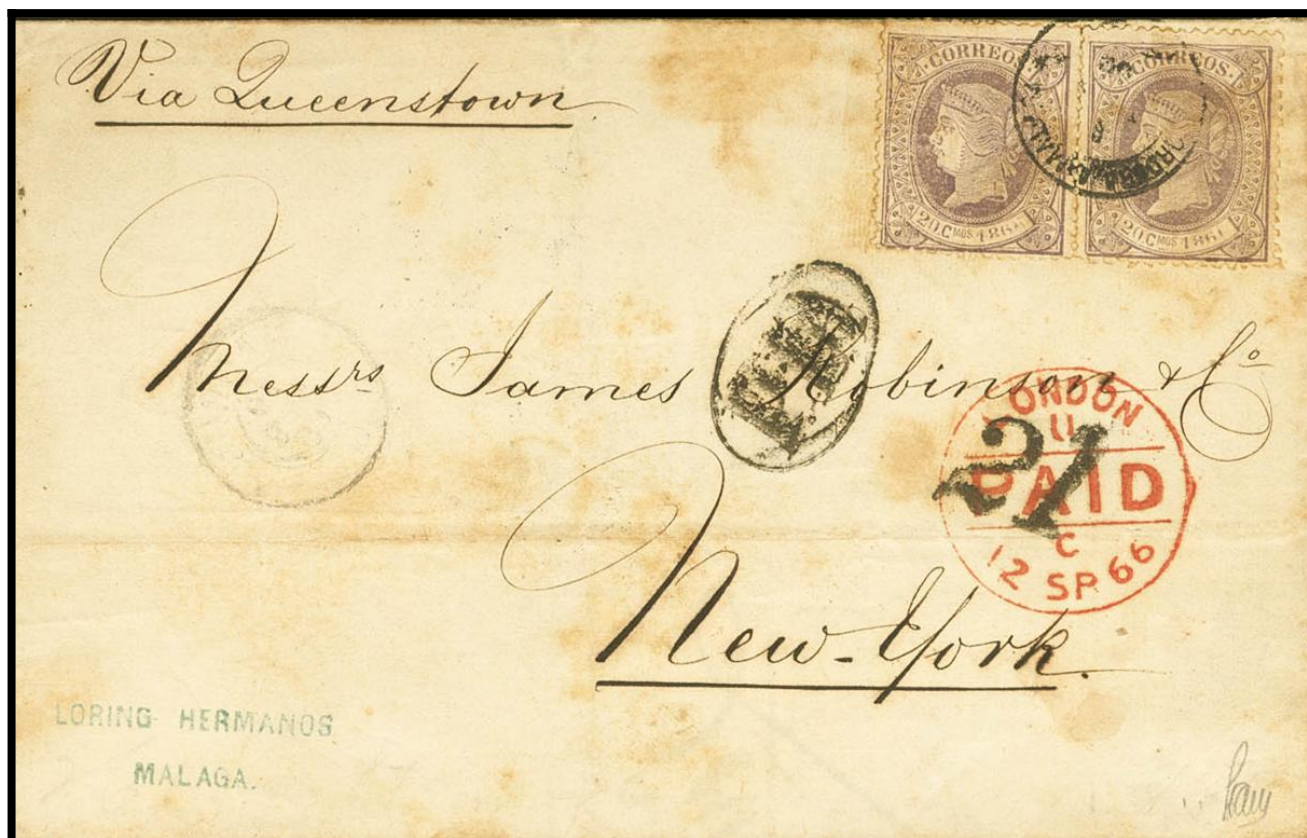 Via Queenstown
CORREOS
20 CMOS 1866
CORREOS
20 CMOS 1866
Messrs James Robinson & Co
LONDON
U
PAID
C
12 SP 66
21
New-York
LORING HERMANOS
MALAGA.